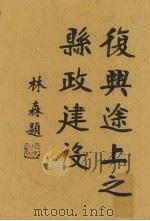 復興途上之
縣政建設
林森題